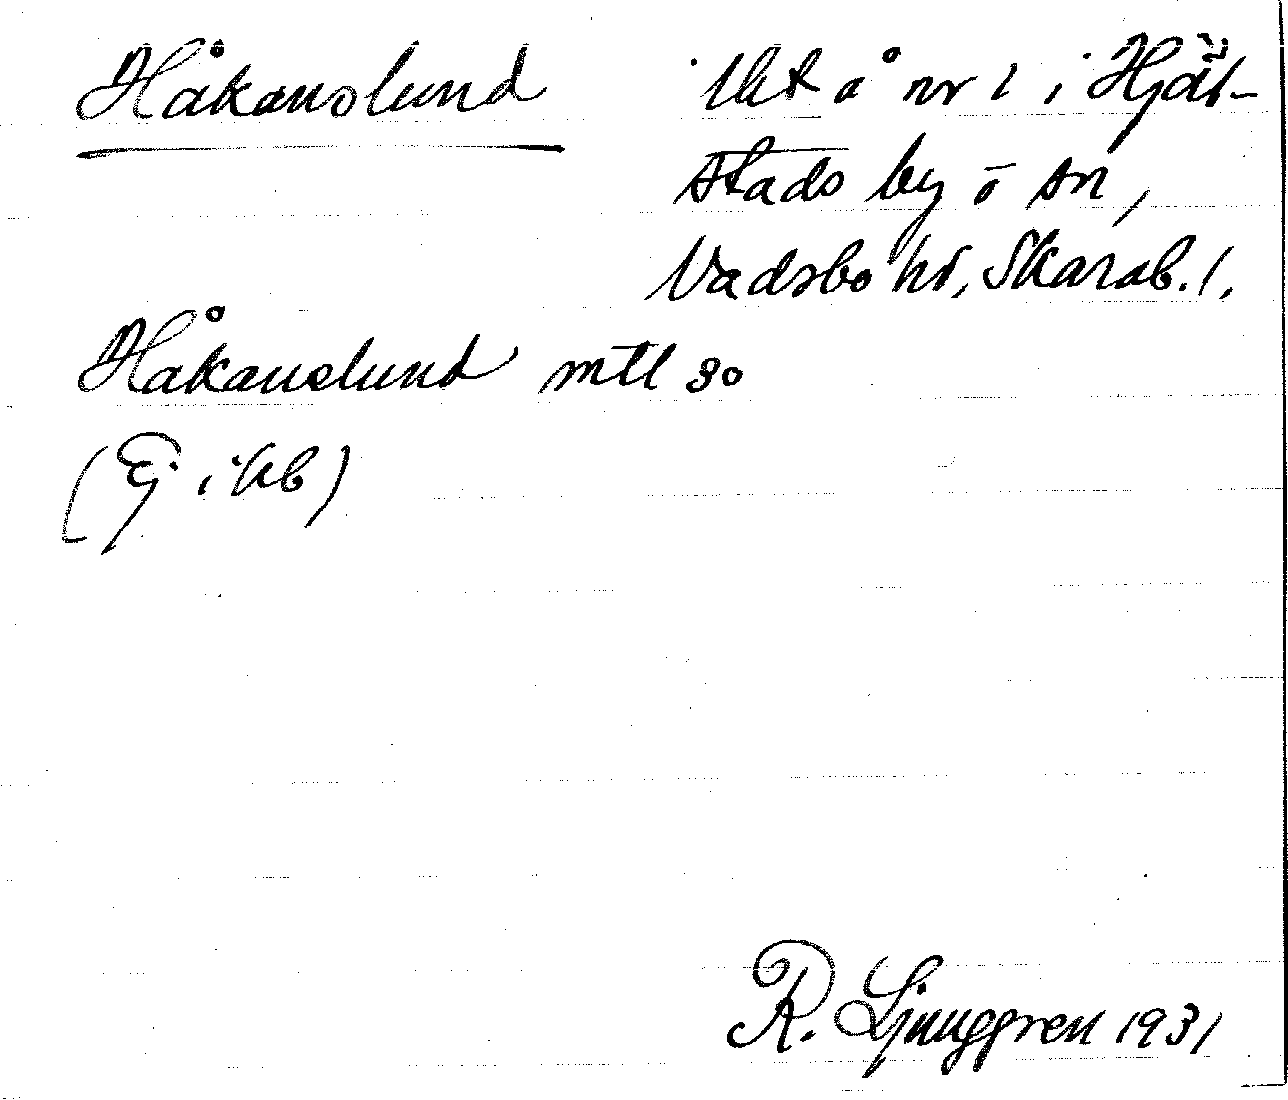 Håkanslund
Ukt å nr 1 i Hjäl-
stads by o sn,
Vadsbo hd, Skarab. l.
Håkanslund mtl 30
(Ej i kb)
R. Ljunggren 1931